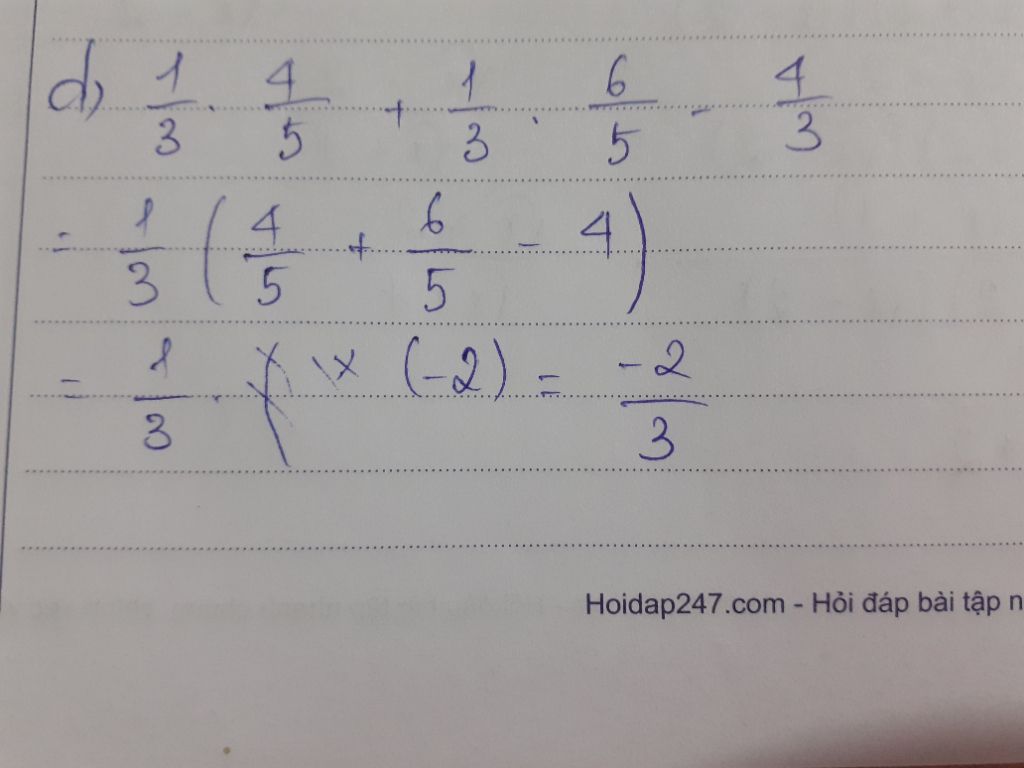 d) 1/3 . 4/5 + 1/3 . 6/5 - 4/3
= 1/3 ( 4/5 + 6/5 - 4 )
= 1/3 . (-2) = -2/3
Hoidap247.com - Hỏi đáp bài tập n